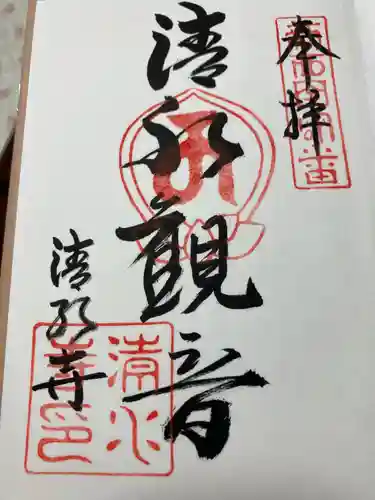 奉拝
清水觀音
清水寺
清水
寺印